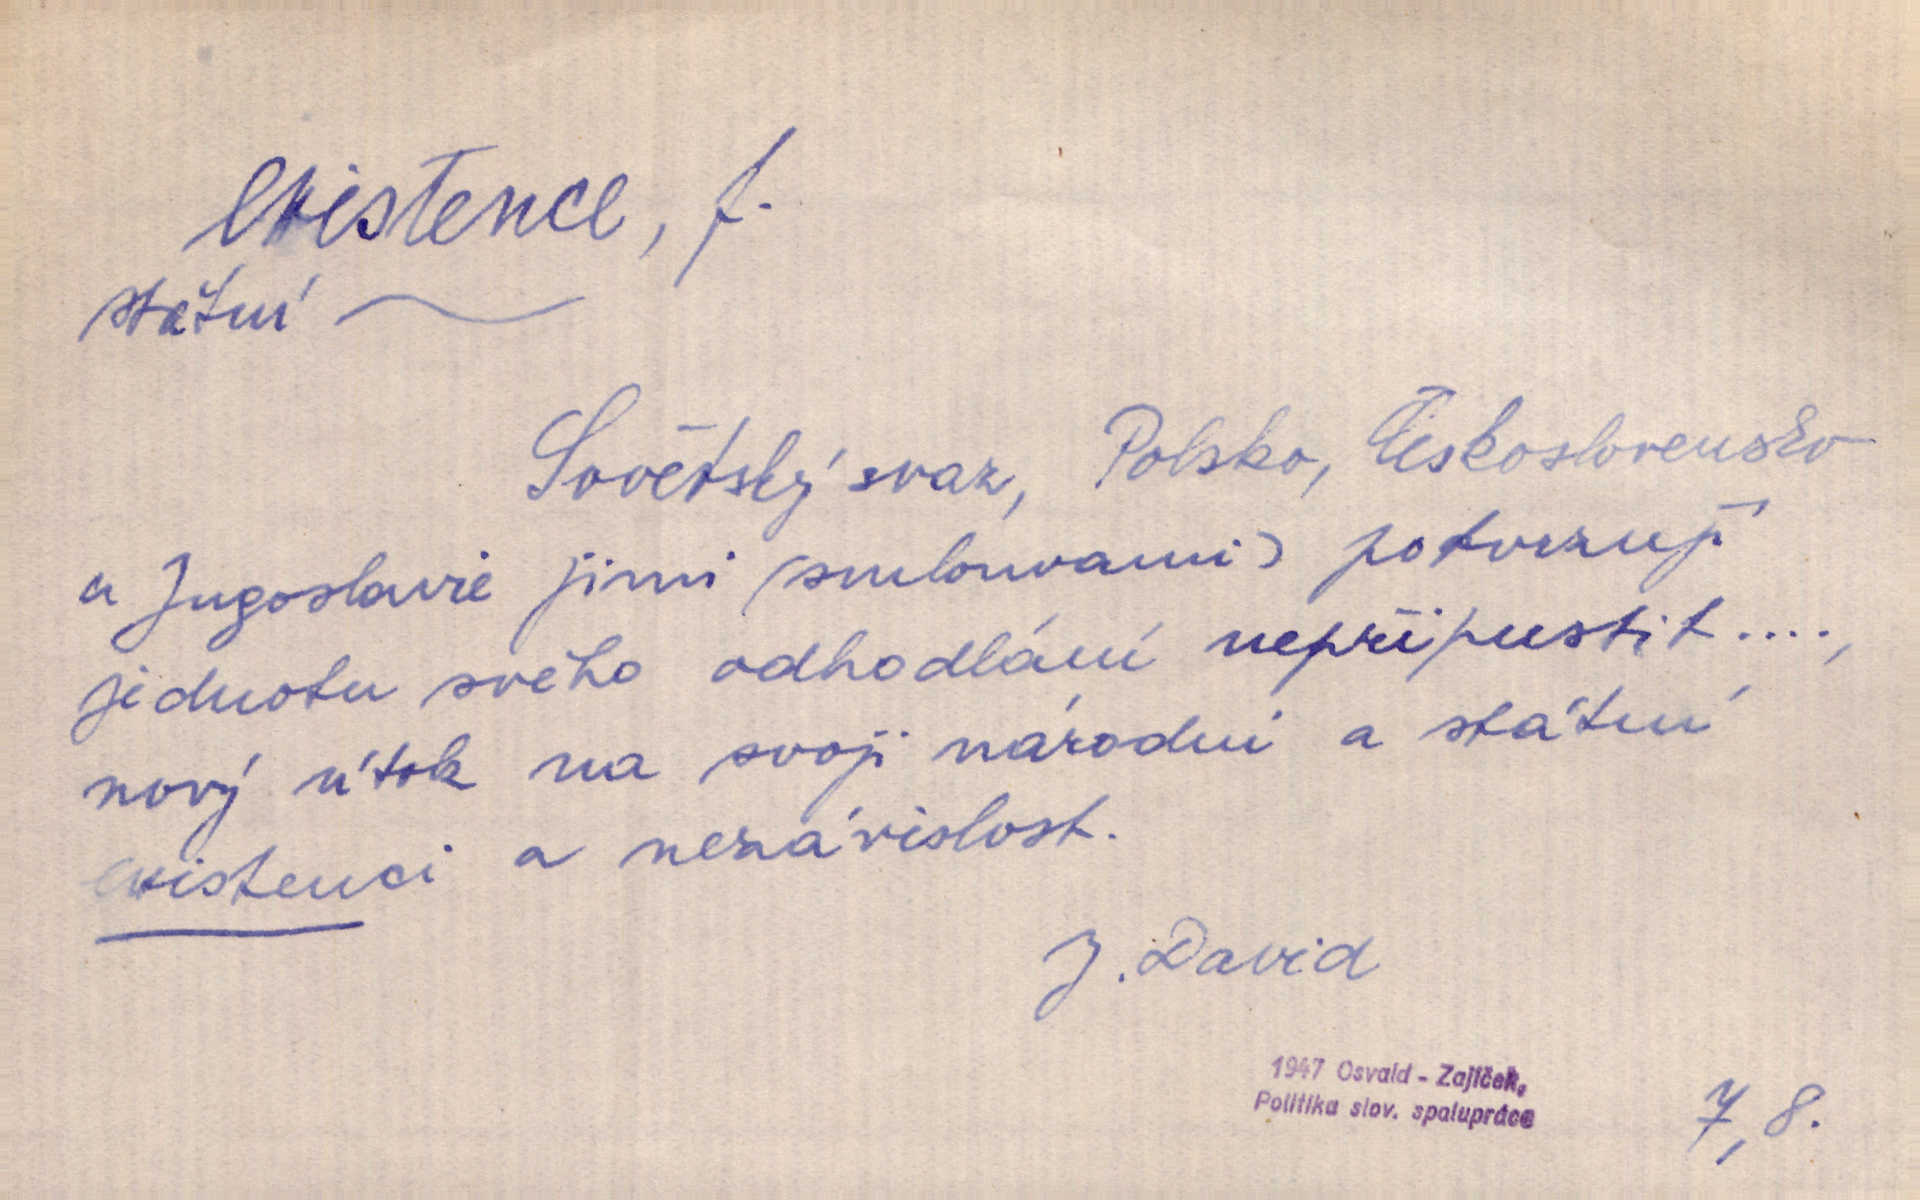 existence, f.
státní ~
Sovětský svaz, Polsko, Československo
a Jugoslavie jimi (smlouvami) potvrzují
jednotu svého odhodlání nepřipustit ....,
nový útok na svoji národní a státní
existenci a nezávislost.
J. David
1947 Osvald - Zajíček,
Politika slov. spolupráce
7,8.